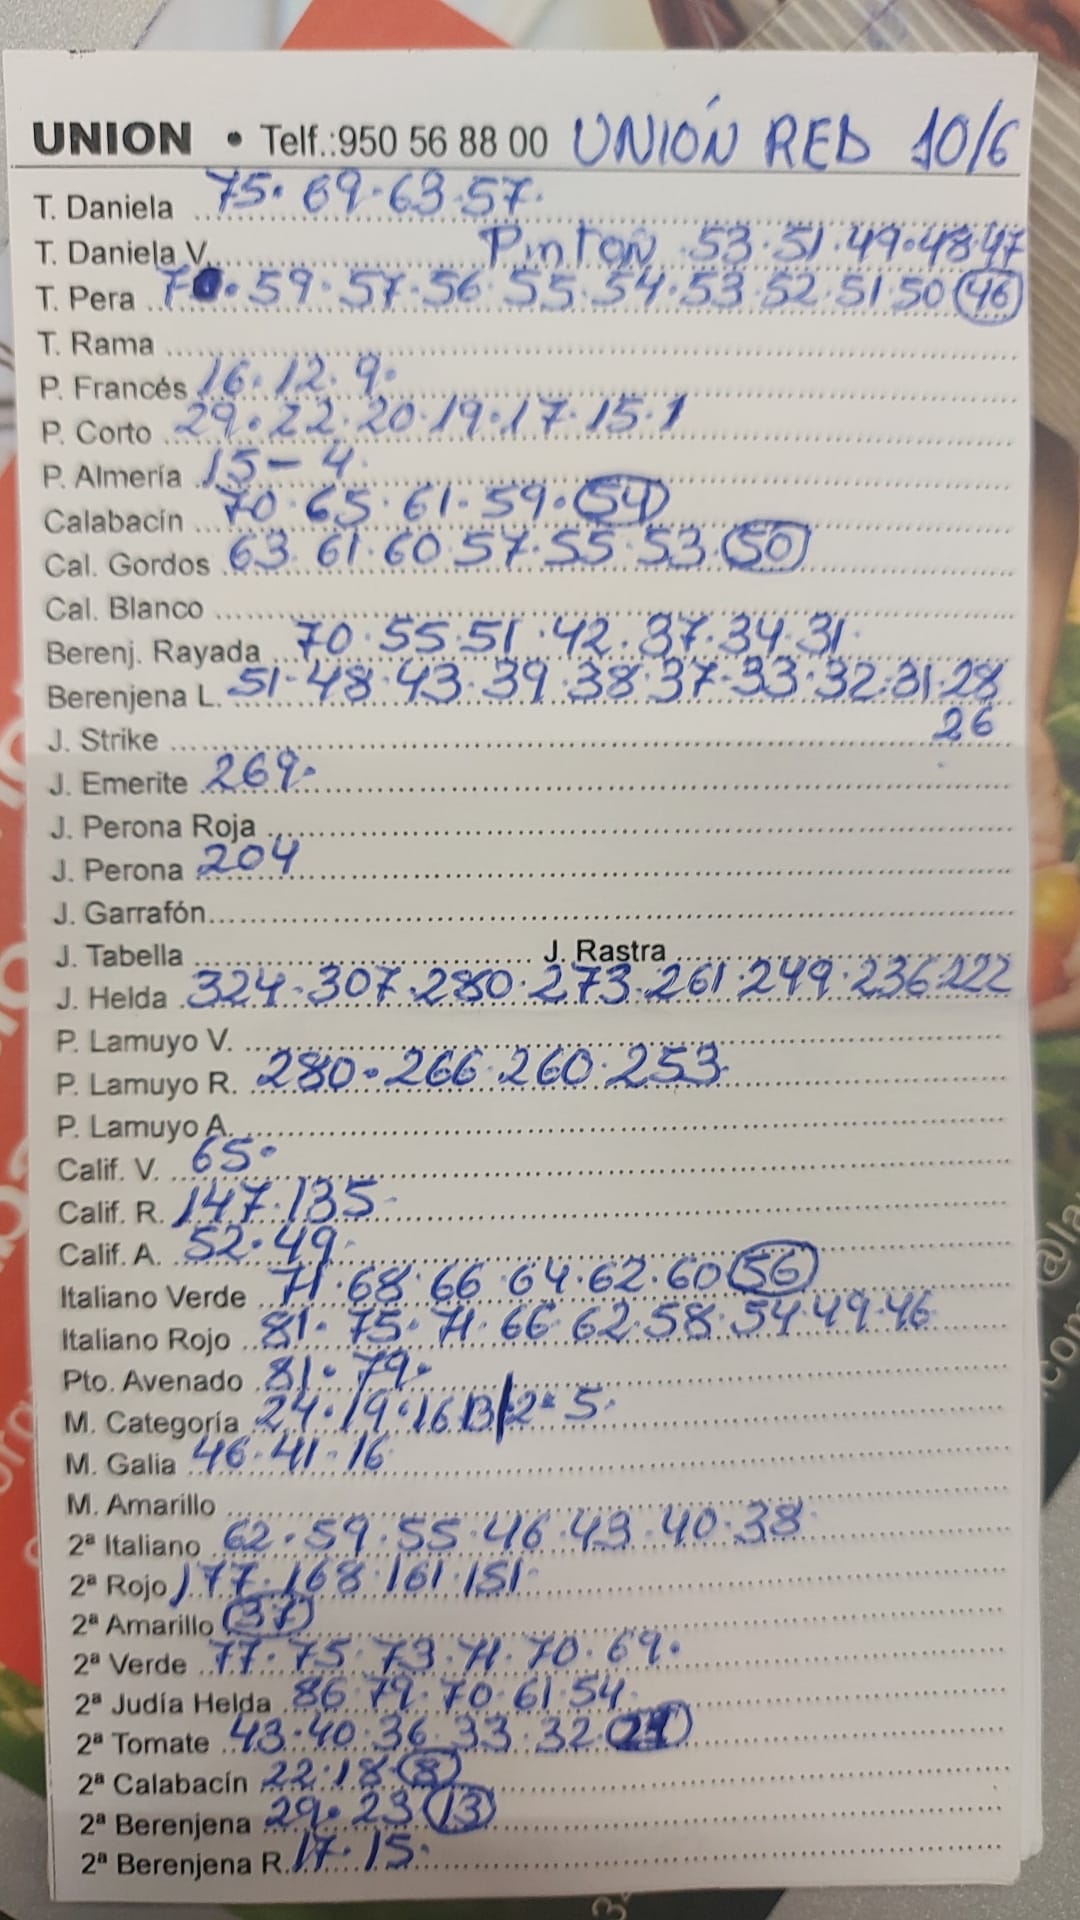 UNION • Telf.:950 56 88 00 UNIÓN RED 10/6
T. Daniela 75. 69. 63. 57.
T. Daniela V. Pintoñ 53. 51. 49. 48. 47
T. Pera 70. 59. 57. 56. 55. 54. 53. 52. 51. 50 46
T. Rama
P. Francés 16. 12. 9.
P. Corto 29. 22. 20. 19. 17. 15. 1
P. Almería 15 - 4.
Calabacín 70. 65. 61. 59. 54
Cal. Gordos 63. 61. 60. 57. 55. 53. 50
Cal. Blanco
Berenj. Rayada 70. 55. 51. 42. 37. 34. 31.
Berenjena L. 51. 48. 43. 39. 38. 37. 33. 32. 31. 28
26
J. Strike
J. Emerite 269.
J. Perona Roja
J. Perona 204
J. Garrafón
J. Tabella J. Rastra
J. Helda 324. 307. 280. 273. 261. 249. 236. 222
P. Lamuyo V.
P. Lamuyo R. 280. 266. 260. 253.
P. Lamuyo A.
Calif. V. 65.
Calif. R. 147. 135.
Calif. A. 52. 49.
Italiano Verde 71. 68. 66. 64. 62. 60 56
Italiano Rojo 81. 75. 71. 66. 62. 58. 54. 49. 46.
Pto. Avenado 81. 79.
M. Categoría 24. 19. 16. 13/2. 5.
M. Galia 46. 41. 16.
M. Amarillo
2ª Italiano 62. 59. 55. 46. 43. 40. 38.
2ª Rojo 177. 168. 161. 151.
2ª Amarillo 37
2ª Verde 77. 75. 73. 71. 70. 69.
2ª Judía Helda 86. 79. 70. 61. 54.
2ª Tomate 43. 40. 36. 33. 32.
2ª Calabacín 22. 18. 8
2ª Berenjena 29. 23 13
2ª Berenjena R. 17. 15.